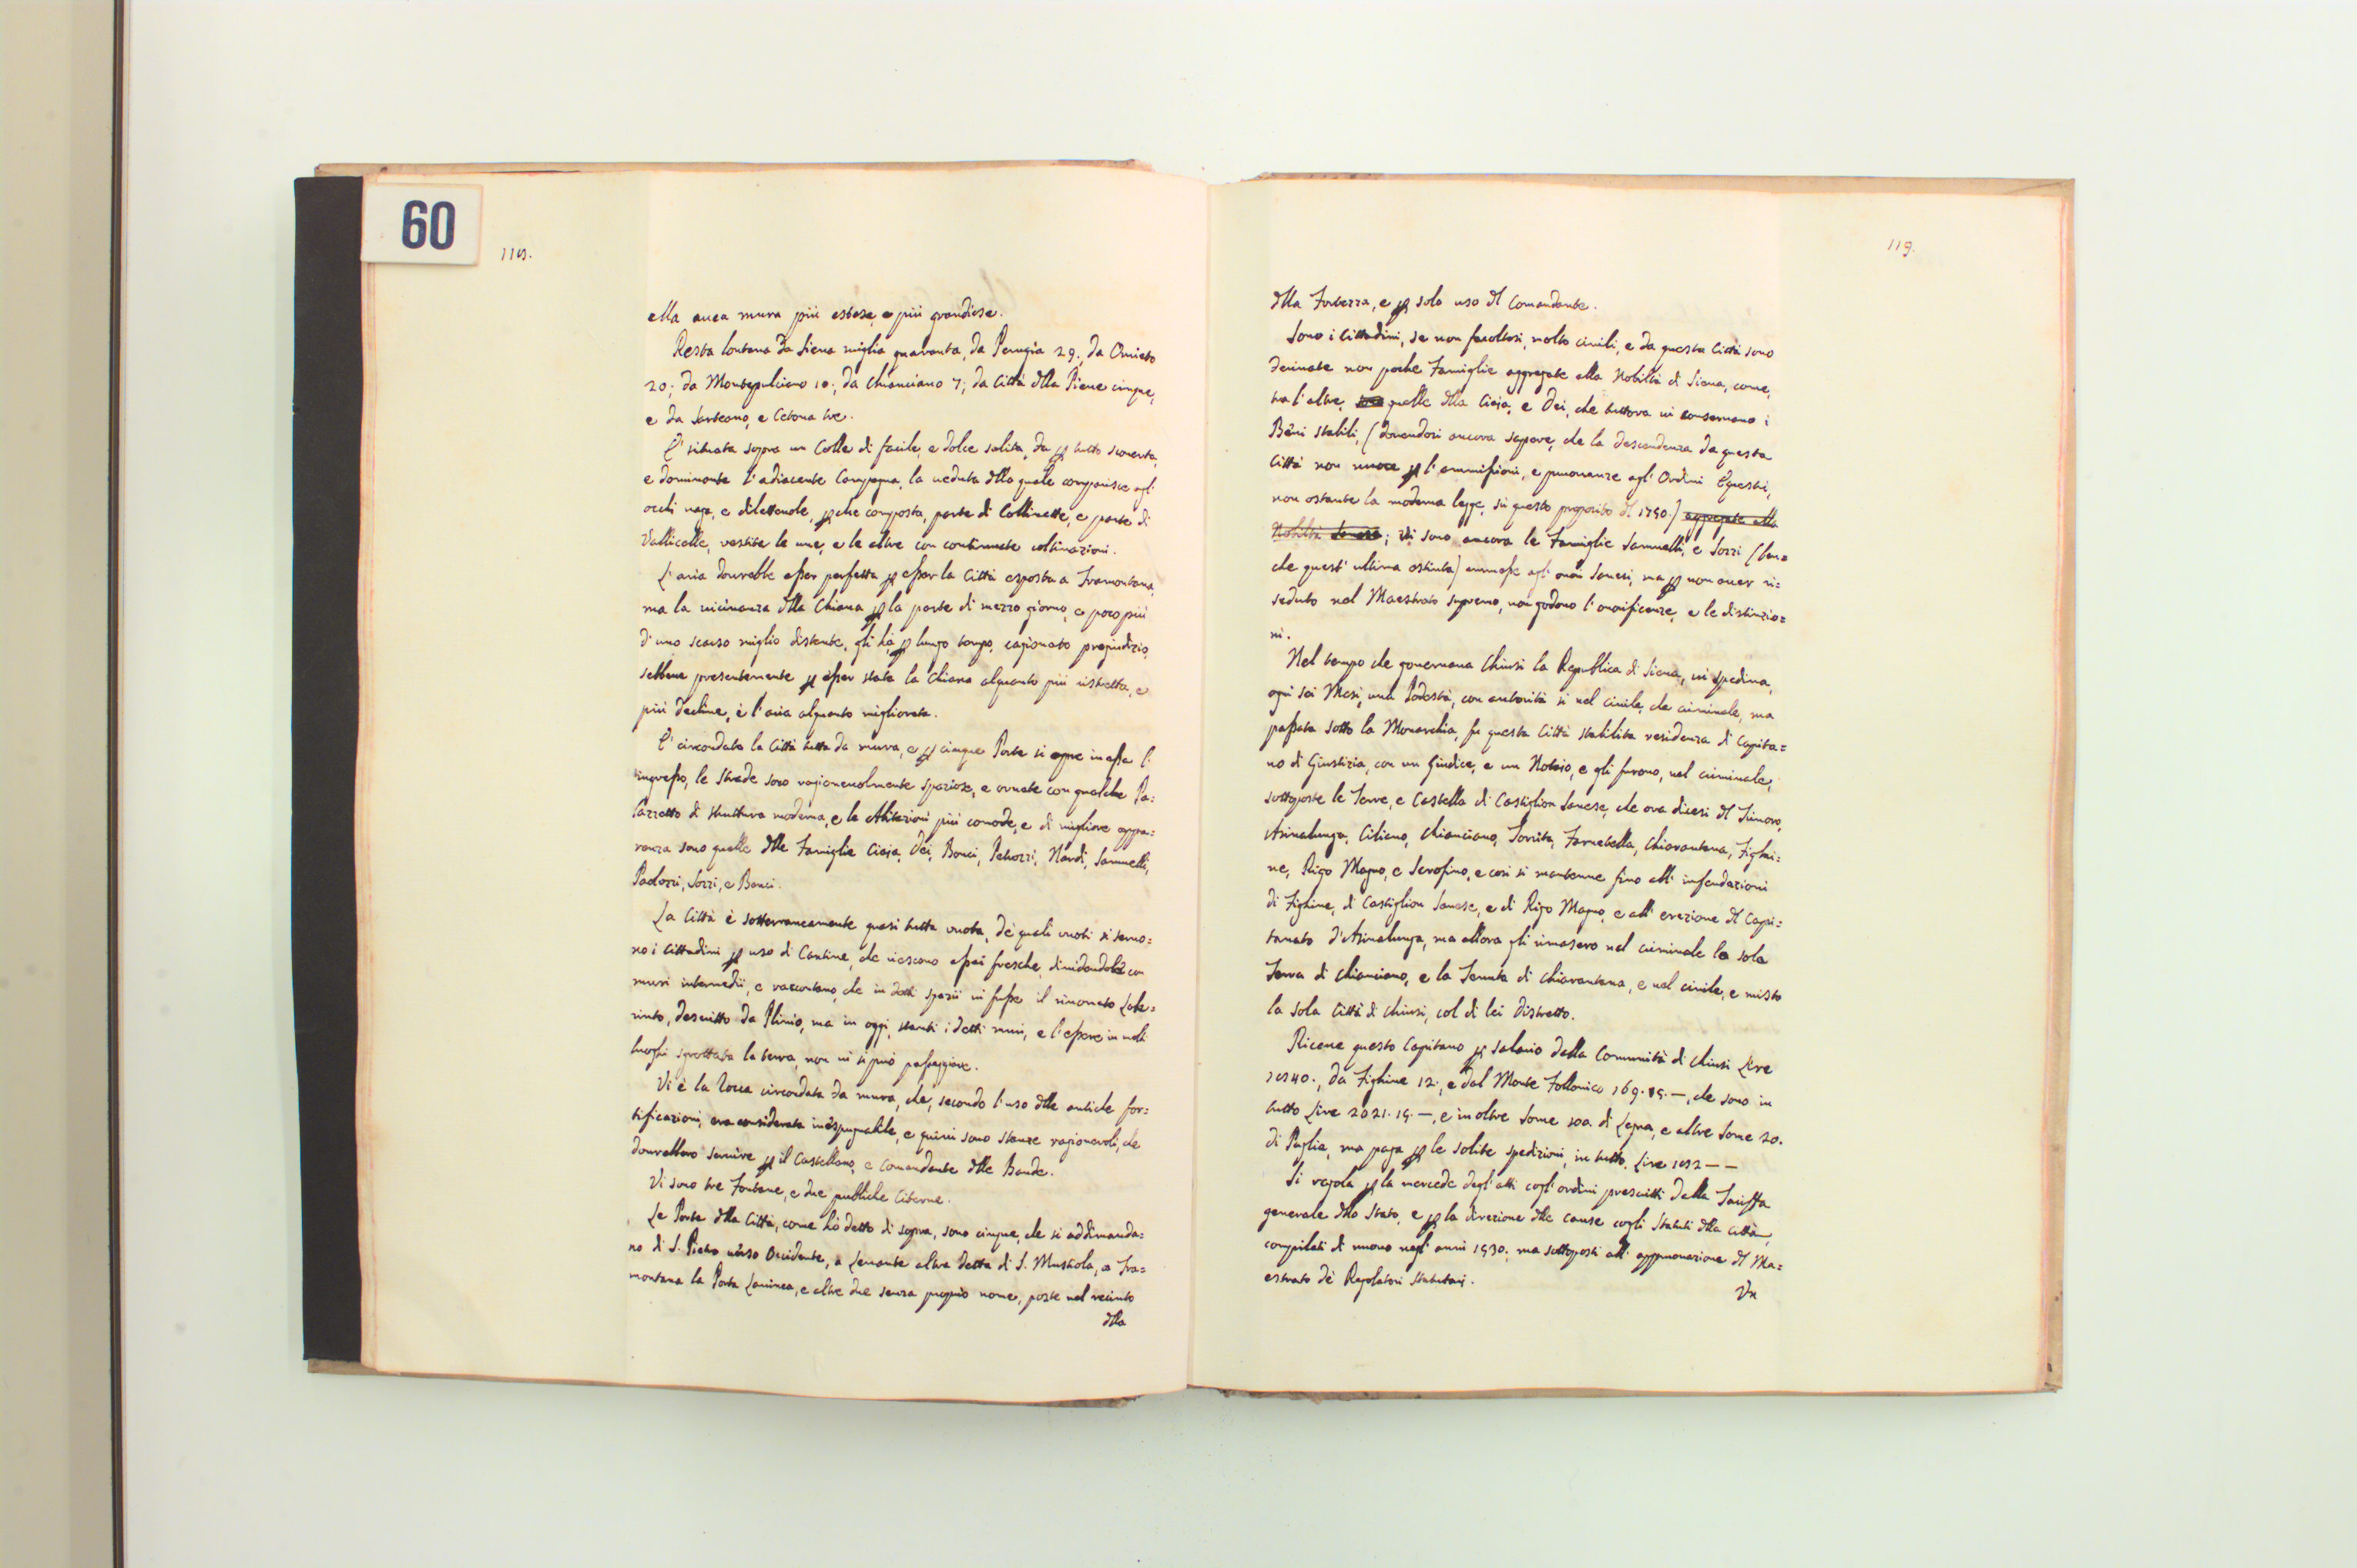 60
118.
ella avea mura più estese, e più grandiose.
Resta lontana da Siena miglia quaranta, da Perugia 29., da Orvieto
20., da Montepulciano 10., da Chianciano 7., da Città dlla Pieve cinque,
e da Sarteano, e Cetona tre.
E' situata sopra un Colle di facile, e dolce salita, da p tutto scoverta,
e dominante l'adiacente Campagna, la veduta dlla quale comparisce agl'
occhi vaga, e dilettevole, pche composta, parte di Collinette, e parte di
Vallicelle, vestite le une, e le altre con continuate coltivazioni.
L'aria dovrebbe esser perfetta p esser la Città esposta a Tramontana,
ma la vicinanza dlla Chiana p la parte di mezzo giorno, e poco più
d'uno scarso miglio distante, gli hà p lungo tempo, cagionato pregiudizio,
sebbene presentemente p esser stata la Chiana alquanto più ristretta, e
più declive, è l'aria alquanto migliorata.
E' circondata la Città tutta da mura, e p cinque Porte si apre in essa l'
ingresso, le strade sono ragionevolmente spaziose, e ornate con qualche Pa=
lazzetto di struttura moderna, e le Abitazioni più comode, e di migliore appa=
renza sono quelle dlle Famiglie Ciaja, Dei, Bonci, Petrozzi, Nardi, Samuelli,
Paolozzi, Sozzi, e Banci.
La Città è sotterraneamente quasi tutta vuota, de' quali vuoti si servo=
no i Cittadini p uso di Cantine, che riescono assai fresche, dividendole con
muri intermedii, e raccontano, che in detti spazii vi fusse il rinomato Labe=
rinto, descritto da Plinio, ma in oggi, stanti i detti muri, e l'essere in molti
luoghi sgrottata la terra, non vi si può passeggiare.
Vi è la Rocca circondata da mura, che, secondo l'uso dlle antiche for=
tificazioni, era considerata inespugnabile, e quivi sono stanze ragionevoli, che
dovrebbero servire p il Castellano, e Comandante dlle Bande.
Vi sono tre Fontane, e due pubbliche Citerne.
Le Porte dlla Città, come hò detto di sopra, sono cinque, che si addimanda=
no di S. Pietro verso Occidente, a Levante altra detta di S. Mustiola, a Tra=
montana la Porta Lavinea, e altre due senza proprio nome, poste nel recinto
dlla
119.
dlla Fortezza, e p solo uso dl Comandante.
Sono i Cittadini, se non facoltosi, molto civili, e da questa Città sono
derivate non poche Famiglie aggregate alla Nobiltà di Siena, come,
tra l'altre, quelle dlla Ciaja, e Dei, che tuttora vi conservano i
Beni stabili, (dovendosi ancora sapere, che la descendenza da questa
Città non nuoce p l'ammissioni, e pruovanze agl'Ordini Equestri,
non ostante la moderna legge, sù questo proposito dl 1750.) aggregate alla
Nobiltà Sanese; vi sono ancora le Famiglie Samuelli, e Sozzi (ben=
che quest'ultima estinta) ammesse agl'onori Sanesi, ma p non aver ri=
seduto nel Maestrato supremo, non godono l'onorificenze, e le distinzio=
ni.
Nel tempo che governava Chiusi la Republica di Siena, vi spediva,
ogni sei Mesi, un Podestà, con autorità sì nel civile, che criminale, ma
passata sotto la Monarchia, fu questa Città stabilita residenza di Capita=
no di Giustizia, con un Giudice, e un Notaio, e gli furono, nel criminale,
sottoposte le Terre, e Castella di Castiglion Sanese, che ora dicesi dl Trinoro,
Asinalunga, Ciliano, Chianciano, Torrita, Farnetella, Chiarantana, Fighi=
ne, Rigo Magno, e Scrofiano, e così si mantenne fino all'infeudazioni
di Fighine, di Castiglion Sanese, e di Rigo Magno, e all'erezione dl Capi=
tanato d'Asinalunga, ma allora gli rimasero nel criminale la sola
Terra di Chianciano, e la Tenuta di Chiarantana, e nel civile, e misto
la sola Città di Chiusi, col di lei distretto.
Riceve questo Capitano p salario dalla Comunità di Chiusi Lire
1840., da Fighine 12., e dal Monte Follonico 169.15.—, che sono in
tutto Lire 2021.15.—, e in oltre some 100. di Legna, e altre some 20.
di Paglia, ma paga p le solite spedizioni, in tutto, Lire 182——
Si regola p la mercede degl'atti cogl'ordini prescritti dalla Tariffa
generale dllo Stato, e p la direzione dlle cause cogli Statuti dlla città,
compilati di nuovo negl'anni 1530. ma sottoposti all'appruovazione dl Ma=
estrato de' Regolatori Statutarj.
Un